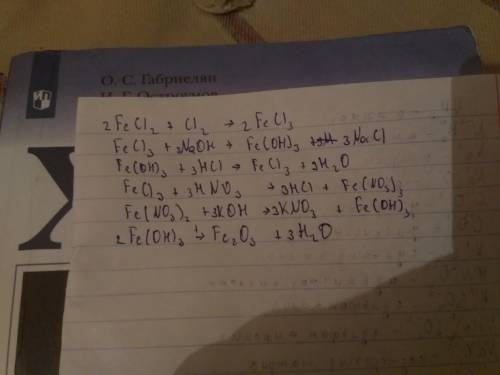 О. С. Габриелян
И. Г. Остроумов
2FeCl2 + Cl2 → 2FeCl3
FeCl3 + 3NaOH → Fe(OH)3 + 3NaCl
Fe(OH)3 + 3HCl → FeCl3 + 3H2O
FeCl3 + 3HNO3 → 3HCl + Fe(NO3)3
Fe(NO3)3 + 3KOH → 3KNO3 + Fe(OH)3
2Fe(OH)3 → Fe2O3 + 3H2O